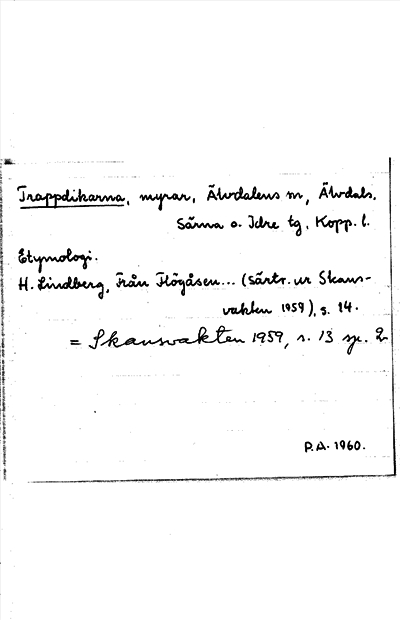 Trappdikarna, myrar, Älvdalens m, Älvdals,
Särna o. Idre tg, Kopp. l.
Etymologi.
H. Lindberg, Från Högåsen... (Särtr. ur Skans-
vakten 1959), s. 14.
= Skansvakten 1959, s. 13 sp. 2
P.A. 1960.